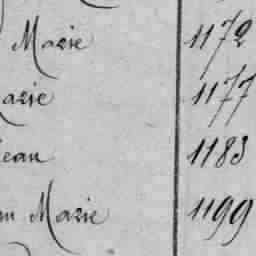 Marie 1172
Marie 1177
Jean 1183
Marie 1199